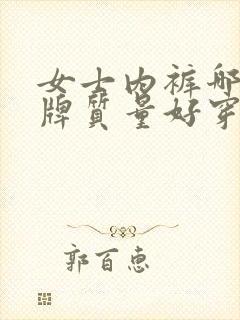 女士内裤哪
牌质量好穿
郭百惠